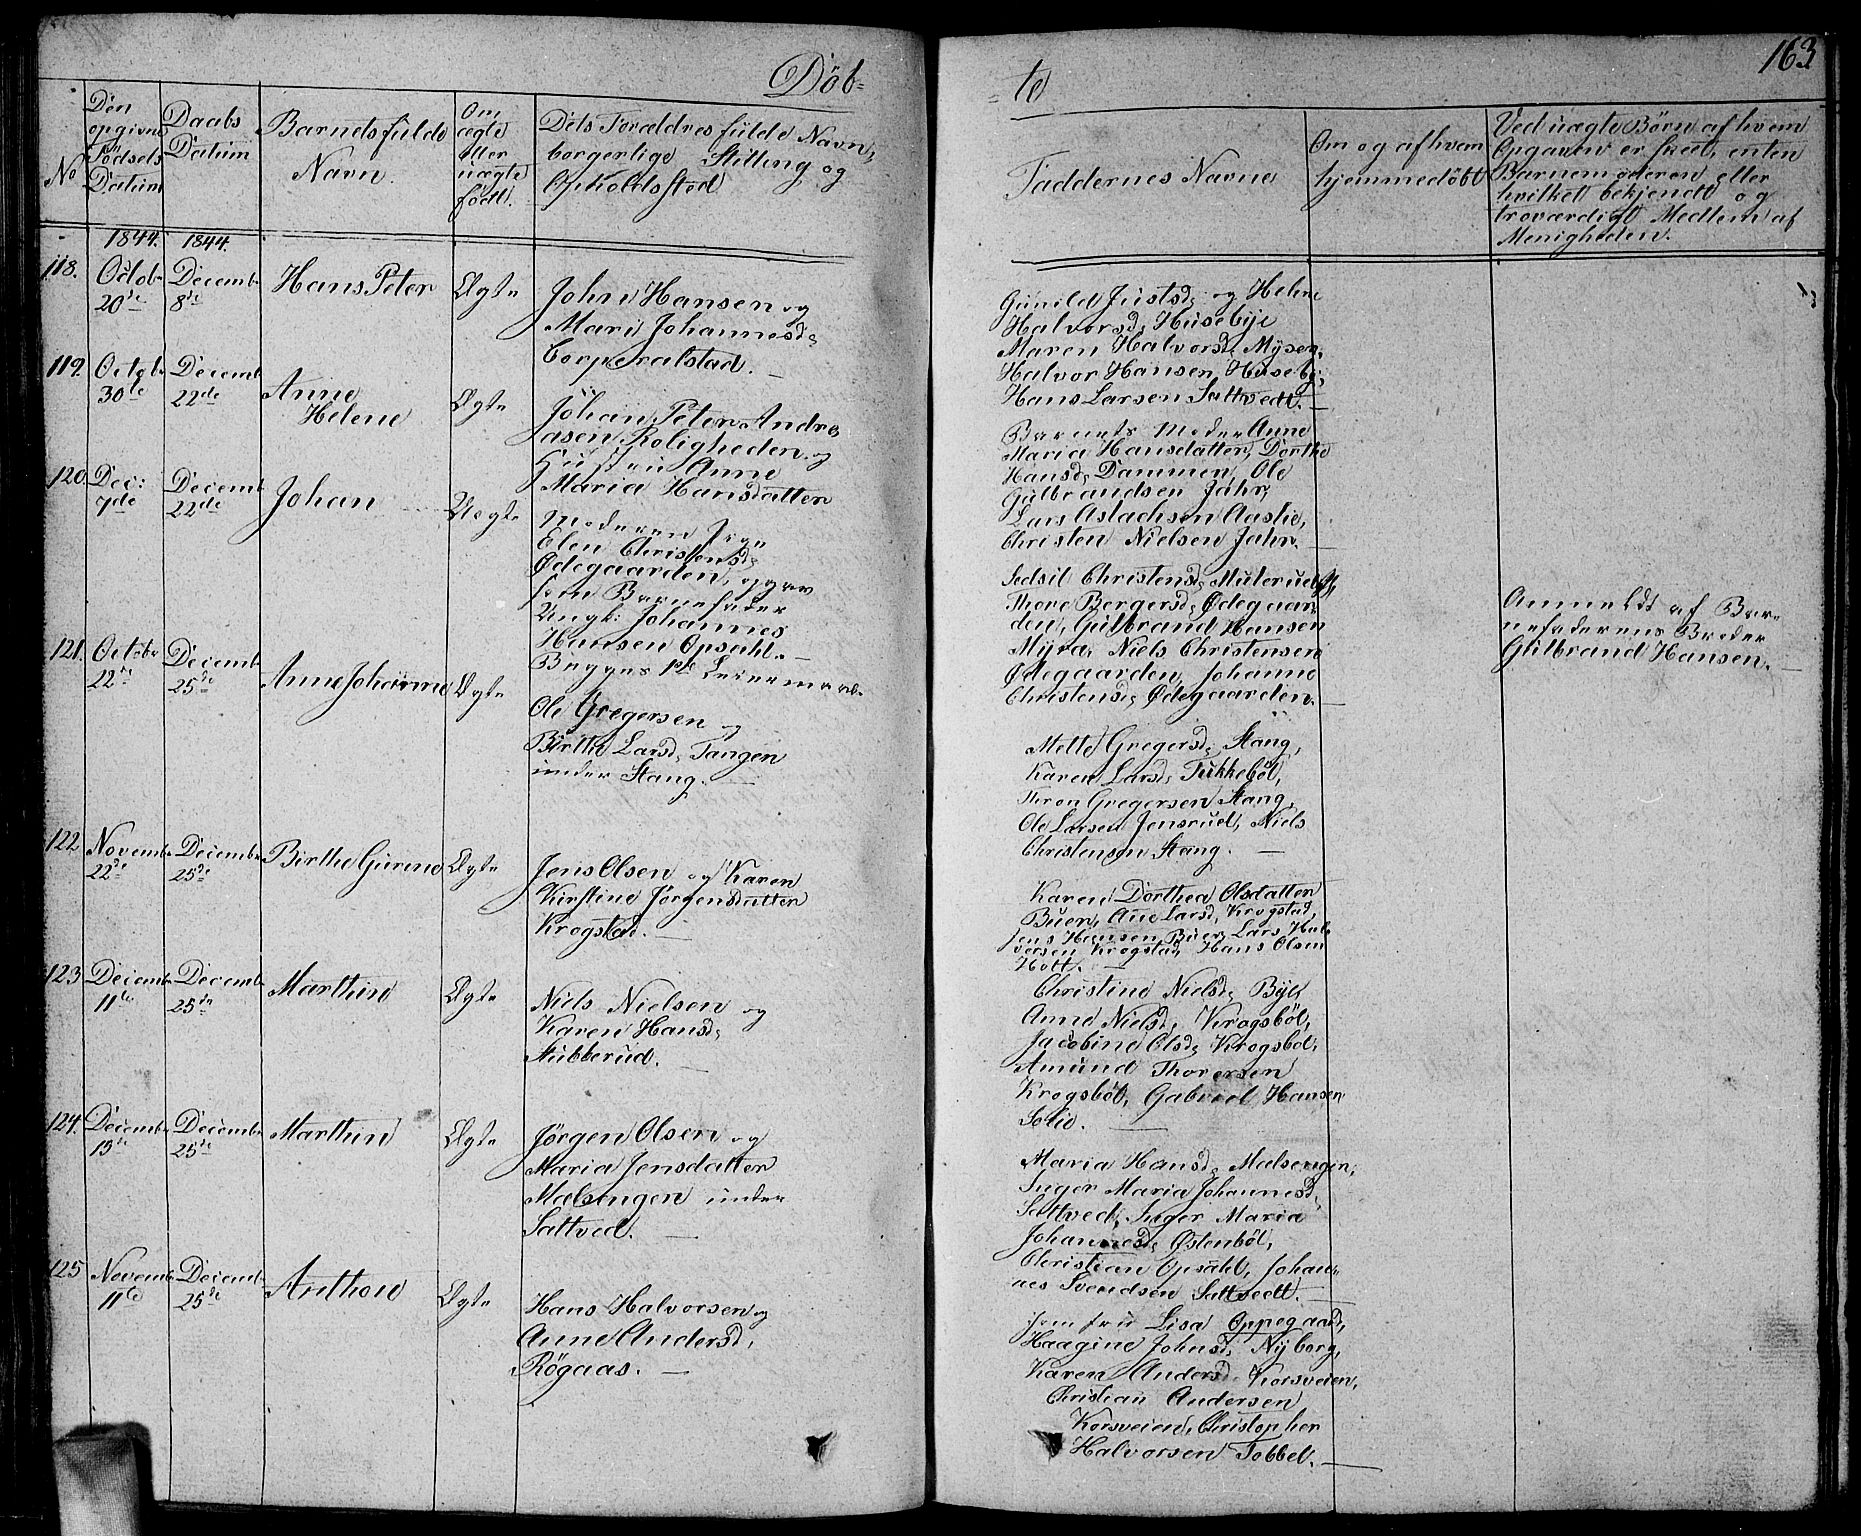 Döb=
= te
163
No
Den opgivne Fødsels Datum
Daabs Datum
Barnets fulde Navn.
Om ægte eller uægte født.
Dets Forældres fulde Navn, borgerlige Stilling og Opholdssted
Faddernes Navne
Om og af hvem hjemmedöbt
Ved uægte Börn af hvem Opgaven er skeet, enten Barnemoderen eller hvilket bekjendt og troværdigt Medlem af Menigheden.
1844. 1844.
118.
Octob
20de
Decemb
8de
Hans Peter
Ægte
John Hansen og
Mari Johannesd,
Corporalstad. —
Gunild Justsd, og Helene
Halvorsd, Husebye
Maren Halvorsd, Mysen,
Halvor Hansen, Huseby,
Hans Larsen Sattvedt. —
119.
Octob
30te
Decemb
22de
Anne
Helene
Ægte
Johan Peter Andre
asen Roligheden og
Hustru Anne
Maria Hansdatter
Barnets Moder Anne
Maria Hansdatter, Dorthe
Hansd, Dammen, Ole
Gulbrandsen Jahr,
Lars Aslachsen Aaslie,
Christen Nielsen Jahr. —
120.
Dec:
7de
Decemb
22de
Johan
Uægte
Moderen Pige
Elen Christensd,
Ødegaarden, opgav
som Barnefader
Ungk: Johannes
Hansen Opsahl. —
Begges 1ste Leiermaal
Sedsil Christensd, Muterud,
Thore Bergersd, Ødegaar
den, Gulbrand Hansen
Myra, Niels Christensen
Ødegaarden, Johanne
Christensd, Ødegaarden. —
Anmeldt af Bar
nefaderens Broder
Gulbrand Hansen. —
121.
Octobr
22de
Decemb
25de
Anne Johanne
Ægte
Ole Gregersen og
Birthe Larsd, Tangen
under Stang. —
Mette Gregersd, Stang,
Karen Larsd, Tukkeböl,
Thron Gregersen Stang,
Ole Larsen Jensrud, Niels
Christensen Stang. —
122
Novemb
22de
Decemb
25de
Birthe Gurine
Ægte
Jens Olsen og Karen
Kirstine Jørgensdatter
Krogstad. —
Karen Dorthea Olsdatter
Buer, Ane Larsd, Krogstad,
Jens Hansen Buer, Lars Hal
vorsen Krogstad, Hans Olsen
Holt. —
123
Decemb
11te
Decemb
25de
Marthine
Ægte
Niels Nielsen og
Karen Hansd,
Stubberud. —
Christine Nielsd, Bye,
Anne Nielsd, Krogsböl,
Jacobine Olsd, Krogsböl,
Amund Thoresen
Krogsböl, Gabriel Hansen
Solie. —
124.
Decemb
15de
Decemb
25de
Marthin
Ægte
Jørgen Olsen og
Maria Jensdatter
Mælsengen under
Sattved. —
Maria Hansd, Mælsengen,
Inger Maria Johannesd,
Sattved, Inger Maria
Johannesd, Østenböl,
Christian Opsahl, Johan
nes Svendsen Sattvedt. —
125
Novemb
11te
Decemb
25de
Anthon
Ægte
Hans Halvorsen og
Anne Andersd,
Rögaas. —
Jomfru Lisa Oppegaard,
Haagine Johnsd, Nyborg,
Karen Andersd, Korsveien,
Christian Andersen
Korsveien, Christopher
Halvorsen Tobbel. —